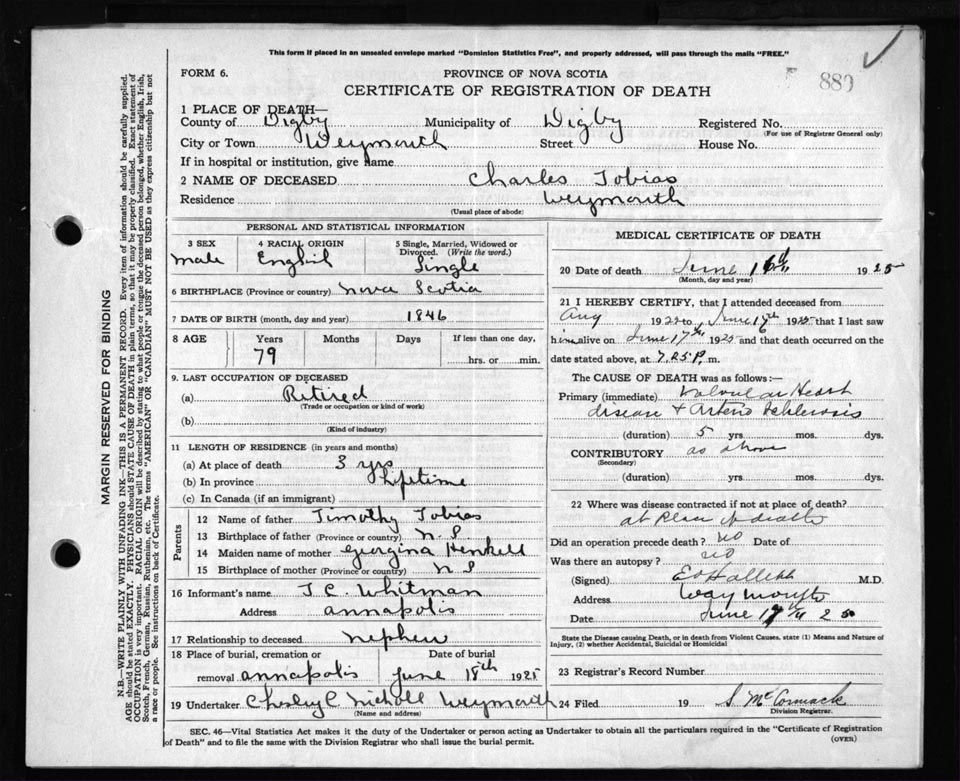 This form if placed in an unsealed envelope marked "Dominion Statistics Free", and properly addressed, will pass through the mails "FREE."
FORM 6.
PROVINCE OF NOVA SCOTIA
880
CERTIFICATE OF REGISTRATION OF DEATH
1 PLACE OF DEATH—
County of Digby Municipality of Digby Registered No.
(For use of Registrar General only)
City or Town Weymouth Street House No.
If in hospital or institution, give name
2 NAME OF DECEASED Charles Tobias
Residence Weymouth
(Usual place of abode)
PERSONAL AND STATISTICAL INFORMATION
3 SEX 4 RACIAL ORIGIN 5 Single, Married, Widowed or
Divorced. (Write the word.)
male English Single
6 BIRTHPLACE (Province or country) Nova Scotia
7 DATE OF BIRTH (month, day and year) 1846
8 AGE Years Months Days If less than one day,
79 hrs. or min.
9. LAST OCCUPATION OF DECEASED
(a) Retired
(Trade or occupation or kind of work)
(b)
(Kind of industry)
11 LENGTH OF RESIDENCE (in years and months)
(a) At place of death 3 yrs
(b) In province Lifetime
(c) In Canada (if an immigrant)
Parents
12 Name of father Timothy Tobias
13 Birthplace of father (Province or country) N.S
14 Maiden name of mother Georgina Henkell
15 Birthplace of mother (Province or country) N S
16 Informant's name J. C. Whitman
Address annapolis
17 Relationship to deceased nephew
18 Place of burial, cremation or Date of burial
removal annapolis June 18th 1925
19 Undertaker Nicholl Weymouth
(Name and address)
MEDICAL CERTIFICATE OF DEATH
20 Date of death June 16th 1925
(Month, day and year)
21 I HEREBY CERTIFY, that I attended deceased from
Aug 1922 to June 17th 1925 that I last saw
him alive on June 17th 1925 and that death occurred on the
date stated above, at 7.25 P. m.
The CAUSE OF DEATH was as follows:—
Primary (immediate) Valvular Heart
disease + Arterio Schlerosis
(duration) 5 yrs mos. dys.
CONTRIBUTORY as above
(Secondary)
(duration) yrs. mos. dys.
22 Where was disease contracted if not at place of death?
at place of death
Did an operation precede death? no Date of
Was there an autopsy? no
(Signed) M.D.
Address Waymouth
Date June 17th 25
State the Disease causing Death, or in death from Violent Causes, state (1) Means and Nature of
Injury, (2) whether Accidental, Suicidal or Homicidal
23 Registrar's Record Number
24 Filed 19 S. McCormack
Division Registrar.
SEC. 46—Vital Statistics Act makes it the duty of the Undertaker or person acting as Undertaker to obtain all the particulars required in the "Certificate of Registration
of Death" and to file the same with the Division Registrar who shall issue the burial permit.
(OVER)
MARGIN RESERVED FOR BINDING
N.B.—WRITE PLAINLY WITH UNFADING INK—THIS IS A PERMANENT RECORD. Every item of information should be carefully supplied.
AGE should be stated EXACTLY. PHYSICIANS should STATE CAUSE OF DEATH in plain terms, so that it may be properly classified. Exact statement of
OCCUPATION is very important. RACIAL ORIGIN will be described by stating to what people or tongue the deceased person belonged, whether English, Irish,
Scotch, French, German, Russian, Ruthenian, etc. The terms "AMERICAN" or "CANADIAN" MUST NOT BE USED as they express citizenship but not
a race or people. See instructions on back of Certificate.